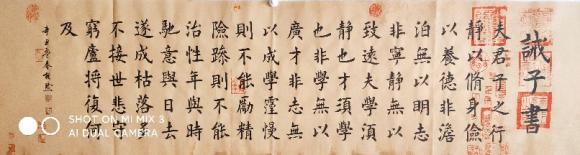 誡子書
夫君子之行
靜以脩身儉
以養德非澹
泊無以明志
非寧靜無以
致遠夫學須
靜也才須學
也非學無以
廣才非志無
以成學慢
則不能勵精
險躁則不能
治性年與時
馳意與日去
遂成枯落多
不接世悲守
窮廬將復何
及
辛丑年春
SHOT ON MI MIX 3
AI DUAL CAMERA